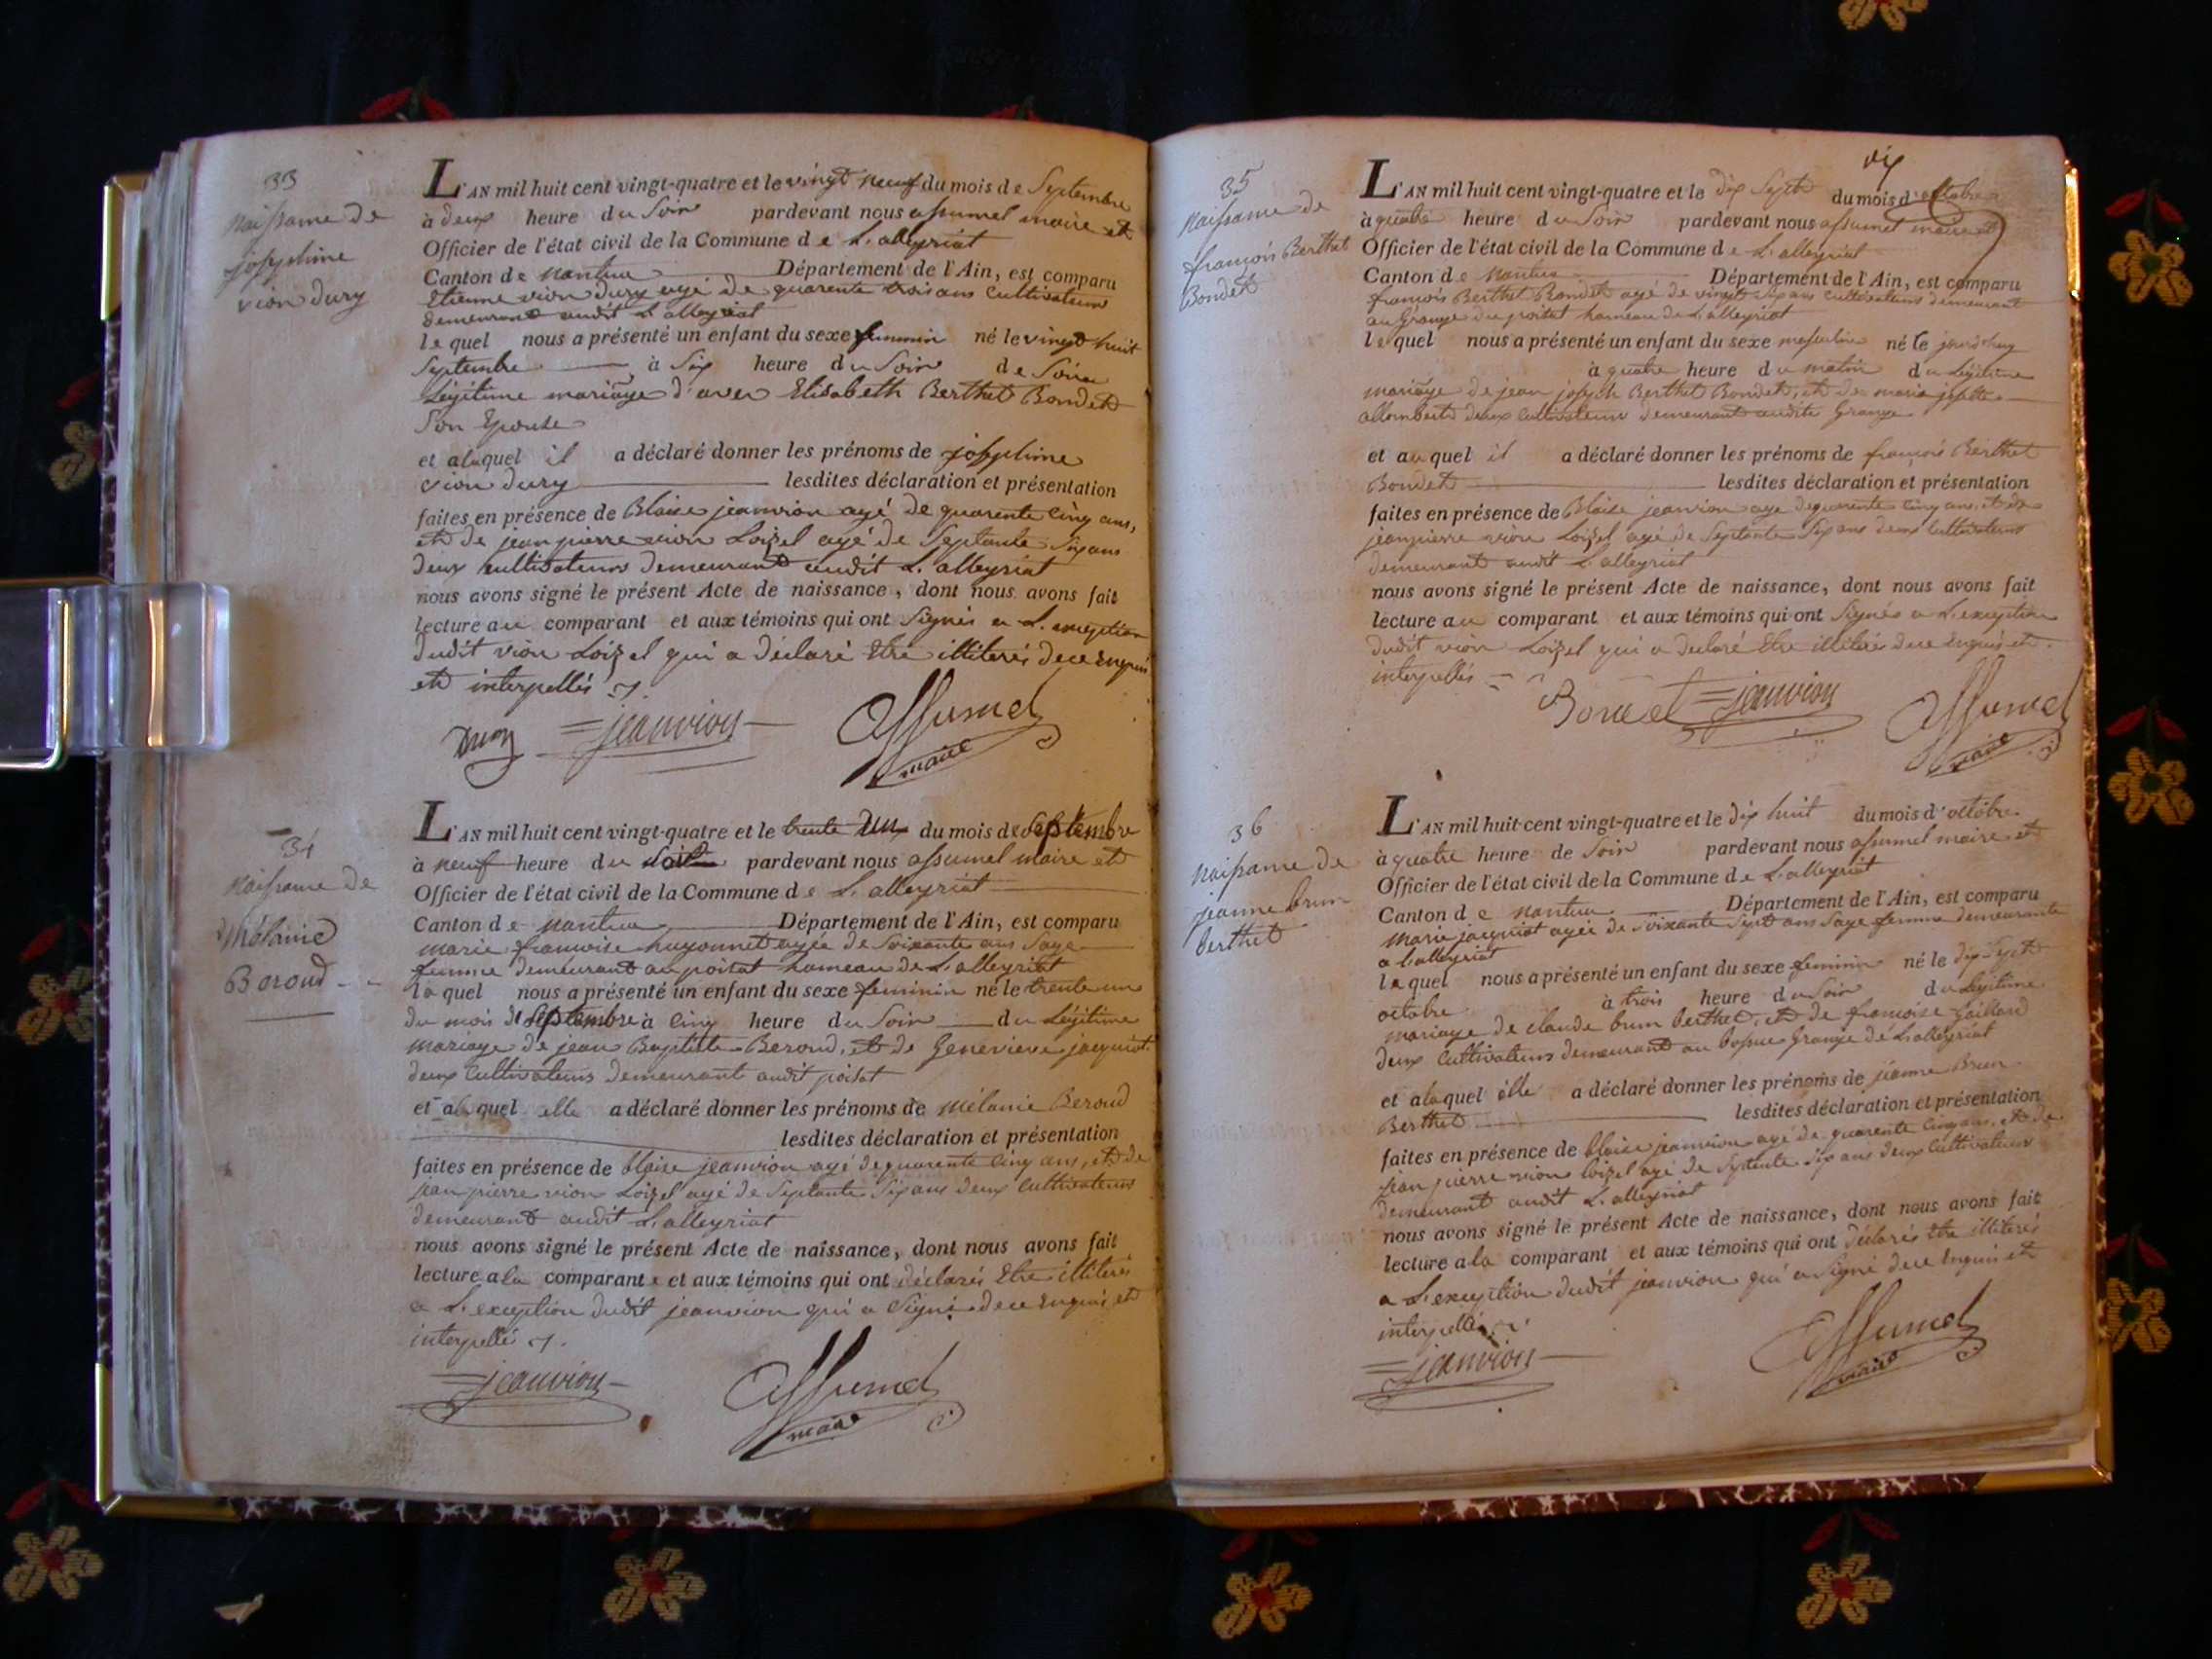 33
Naissance de
josephine
vion dury
L'AN mil huit cent vingt-quatre et le vingt neuf du mois de Septembre
à deux heure du Soir pardevant nous assumel maire et
Officier de l'état civil de la Commune de L'alleyriat
Canton de Nantua Département de l'Ain, est comparu
Etienne vion dury agé de quarente trois ans Cultivateur
demeurant audit L'alleyriat
lequel nous a présenté un enfant du sexe feminin né le vingt huit
Septembre à Six heure du Soir de Son
Légitime mariage d'avec Elisabeth Berthet Bondet
Son Epouse
et alaquel il a déclaré donner les prénoms de josephine
vion dury lesdites déclaration et présentation
faites en présence de Blaise jeanvion agé de quarente Cinq ans,
et de jean pierre vion Loizel agé de Septante Six ans
deux cultivateurs demeurant audit L'alleyriat
nous avons signé le présent Acte de naissance, dont nous avons fait
lecture au comparant et aux témoins qui ont Signés a L'exception
dudit vion Loizel qui a déclaré Etre illiterés de ce Enquis
et interpellés
Dury jeanvion Assumel
maire
34
Naissance de
Mélanie
Beroud
L'AN mil huit cent vingt-quatre et le trente Un du mois de Septembre
à neuf heure du Soir pardevant nous assumel maire et
Officier de l'état civil de la Commune de L'alleyriat
Canton de Nantua Département de l'Ain, est comparu
marie francoise huyonnet agée de Soixante ans Sage
femme demeurant au poitat hameau de L'alleyriat
laquel nous a présenté un enfant du sexe feminin né le trente un
du mois d Septembre à Cinq heure du Soir du Légitime
mariage de jean Baptiste Beroud, et de Genevieve jacquiot
deux Cultivateurs demeurant audit poitat
et alaquel elle a déclaré donner les prénoms de mélanie Beroud
lesdites déclaration et présentation
faites en présence de blaise jeanvion agé de quarente Cinq ans, et de
jean pierre vion Loizel agé de Septante Six ans deux Cultivateurs
demeurant audit L'alleyriat
nous avons signé le présent Acte de naissance, dont nous avons fait
lecture ala comparante et aux témoins qui ont déclarés Etre illiterés
a L'exception dudit jeanvion qui a Signé de ce Enquis et
interpellés
jeanvion Assumel
maire
35
Naissance de
françois Berthet
Bondet
L'AN mil huit cent vingt-quatre et le dix Sept du mois d'octobre
à quatre heure du Soir pardevant nous assumel maire et
Officier de l'état civil de la Commune de L'alleyriat
Canton de Nantua Département de l'Ain, est comparu
françois Berthet Bondet agé de vingt Six ans cultivateur demeurant
au Grange du poitat hameau de L'alleyriat
lequel nous a présenté un enfant du sexe masculin né le
à quatre heure du matin du Légitime
mariage de jean joseph Berthet Bondet, et de marie josette
allombert deux Cultivateurs demeurant audite Grange
et auquel il a déclaré donner les prénoms de françois Berthet
Bondet lesdites déclaration et présentation
faites en présence de Blaise jeanvion age de quarente Cinq ans, et de
jean pierre vion Loizel agé de Septante Six ans deux Cultivateurs
demeurant audit L'alleyriat
nous avons signé le présent Acte de naissance, dont nous avons fait
lecture au comparant et aux témoins qui ont Signés a L'exception
dudit vion Loizel qui a déclaré Etre illiterés de ce Enquis et
interpellés
Bondet jeanvion Assumel
maire
36
Naissance de
jeanne brun
berthet
L'AN mil huit cent vingt-quatre et le dix huit du mois d'octobre
à quatre heure de Soir pardevant nous assumel maire et
Officier de l'état civil de la Commune de L'alleyriat
Canton de Nantua Département de l'Ain, est comparu
Marie jacquiot agée de Soixante Sept ans Sage femme demeurante
a L'alleyriat
laquel nous a présenté un enfant du sexe feminin né le dix Sept
octobre à trois heure du Soir du Légitime
mariage de claude brun berthet, et de francoise Gaillard
deux Cultivateurs demeurant au Grange de L'alleyriat
et alaquel elle a déclaré donner les prénoms de jeanne Brun
Berthet lesdites déclaration et présentation
faites en présence de blaise jeanvion agé de quarente Cinq ans, et de
jean pierre vion loizel agé de Septente Six ans deux Cultivateurs
demeurant audit L'alleyriat
nous avons signé le présent Acte de naissance, dont nous avons fait
lecture ala comparant et aux témoins qui ont déclarés Etre illiterés
a L'exception dudit jeanvion qui a Signé de ce Enquis et
interpellés
jeanvion Assumel
maire